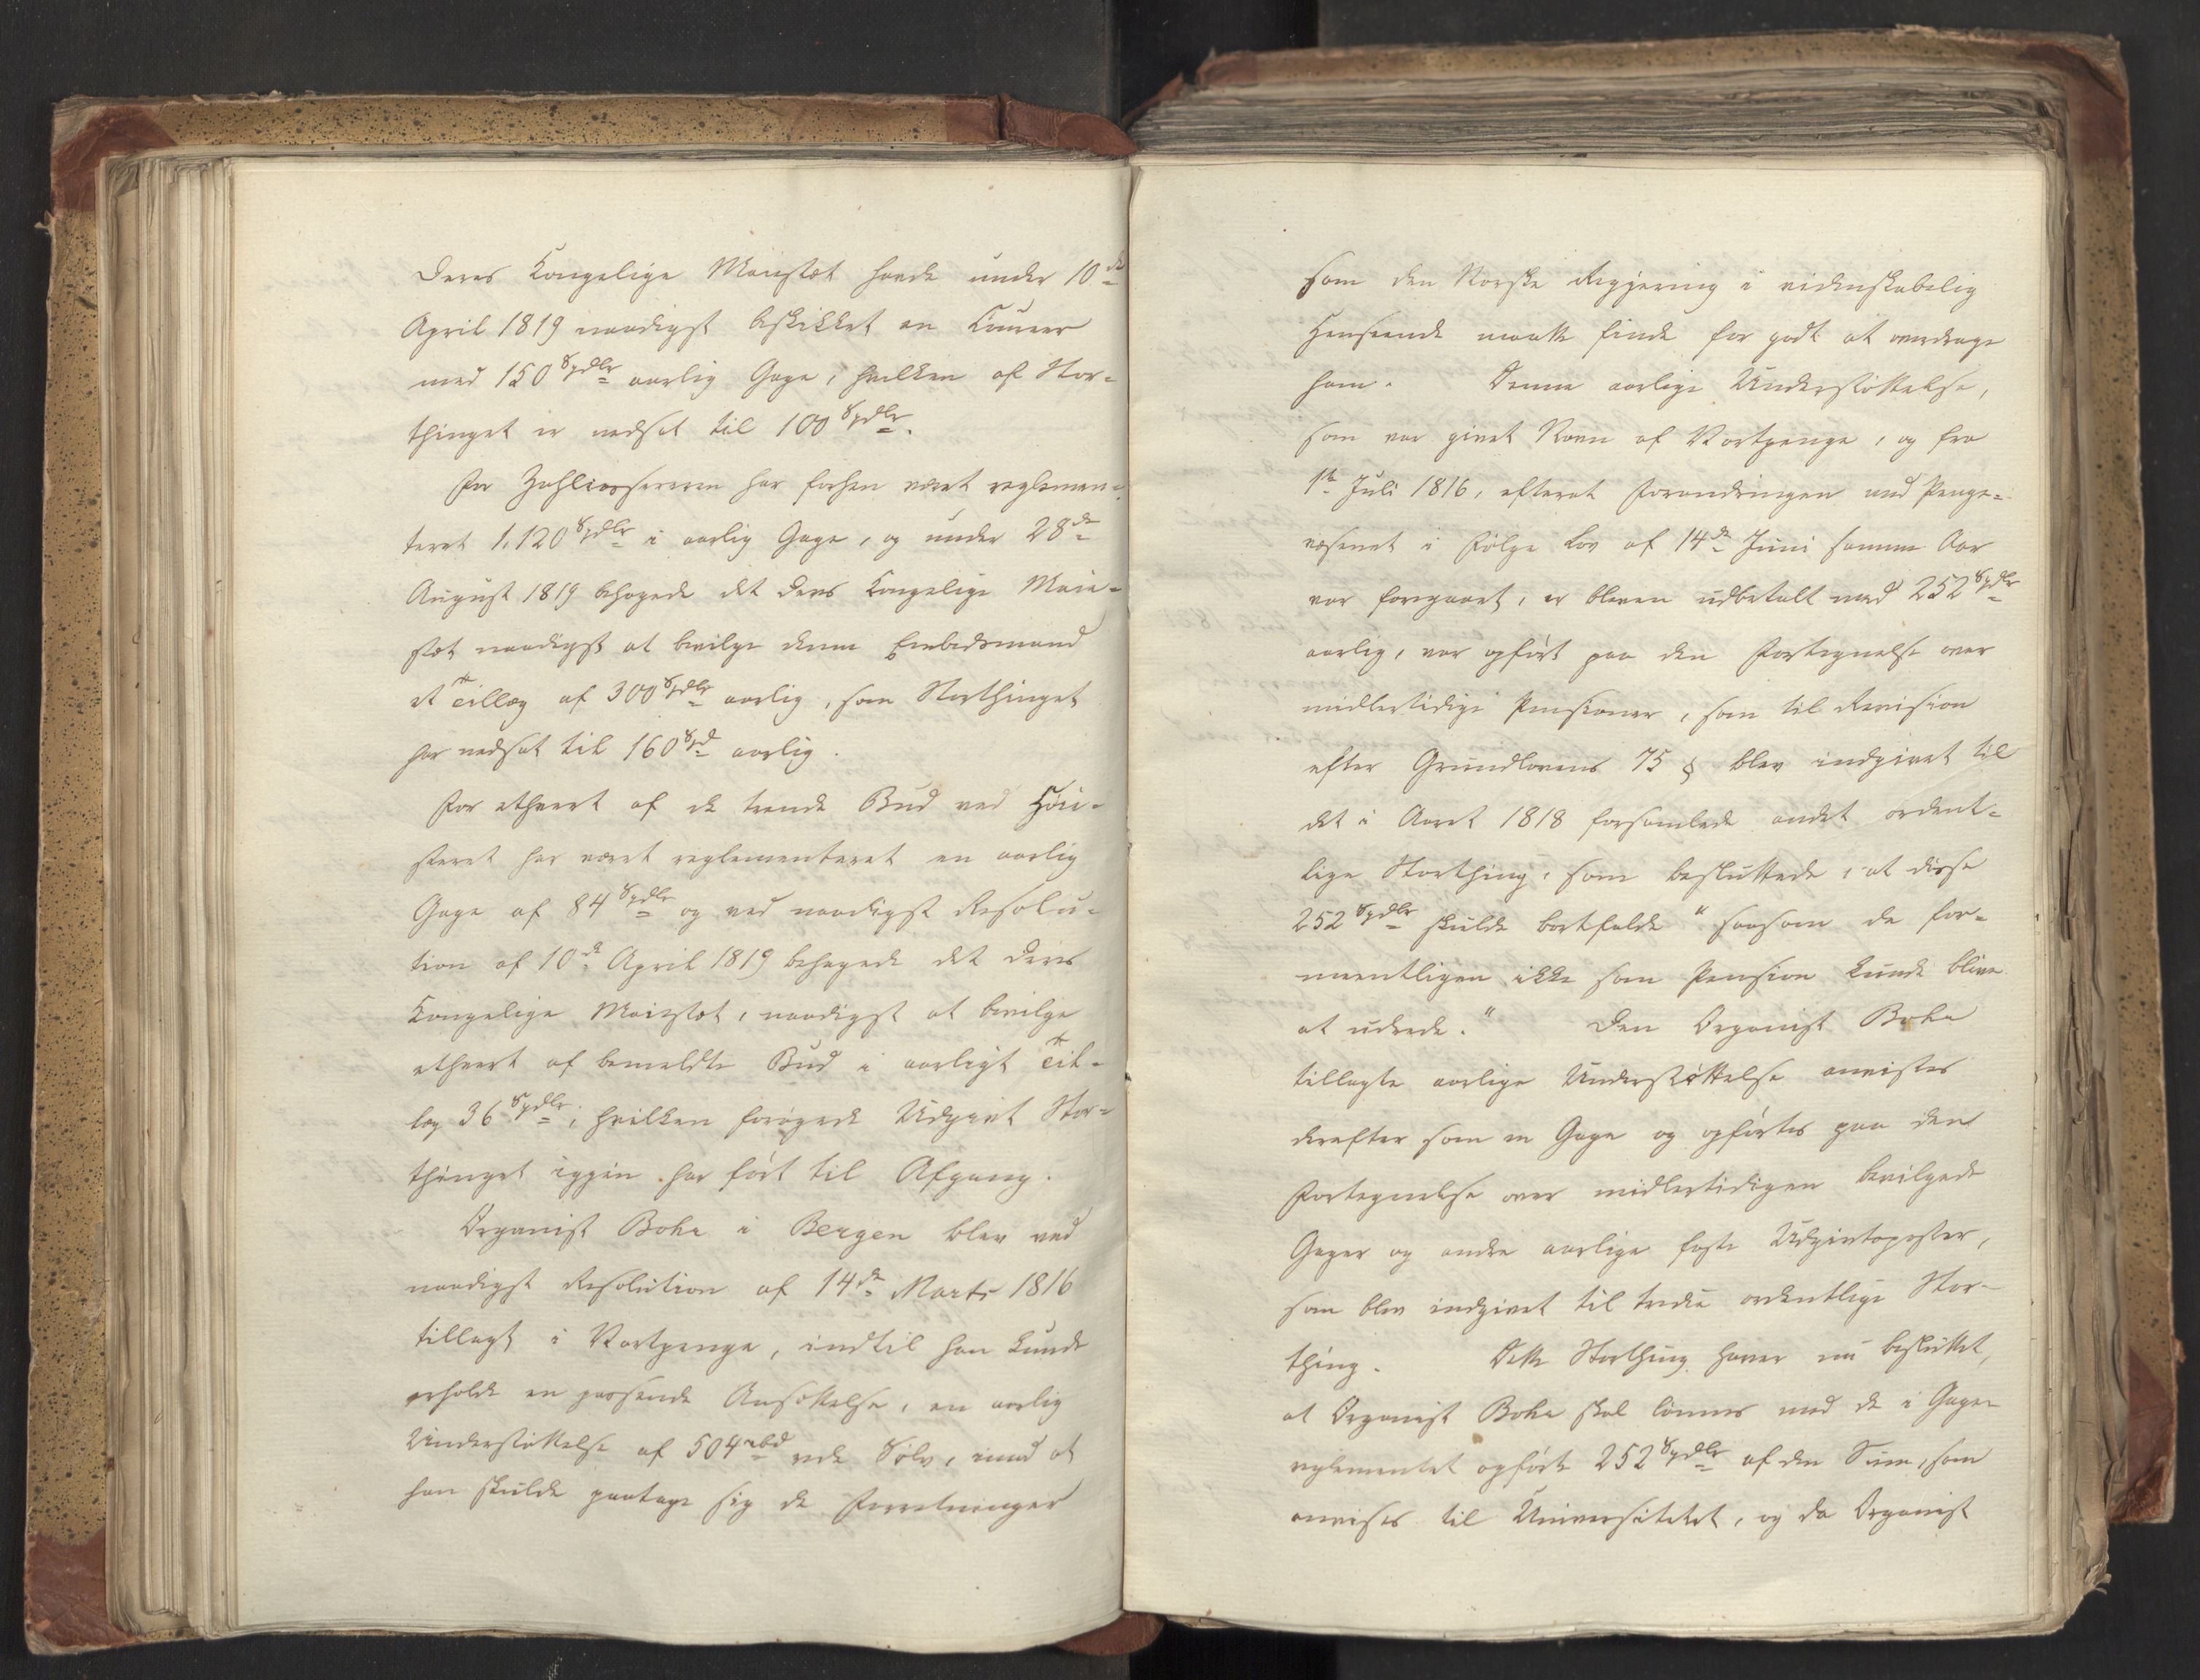 Deres Kongelige Maiestæt havde under 10de
April 1819 naadigst beskikket en Cureer
med 150 Spdlr aarlig Gage, hvilken af Stor-
thinget er nedsat til 100 Spdlr.
For Zahlcassereren har forhen været reglemen-
teret 1,120 Spdlr i aarlig Gage, og under 28de
August 1819 behagede det Deres Kongelige Maie-
stæt naadigst at bevilge denne Embedsmand
et Tillæg af 300 Spdlr aarlig, som Storthinget
har nedsat til 160 Spd aarlig.
For ethvert af de trende Bud ved Høie-
steret har været reglementeret en aarlig
Gage af 84 Spdlr og ved naadigst Resolu-
tion af 10de April 1819 behagede det Deres
Kongelige Maiestæt, naadigst at bevilge
ethvert af bemeldte Bud i aarligt Til-
læg 36 Spdlr; hvilken forøgede Udgivt Stor-
thinget igjen har ført til Afgang.
Organist Bohr i Bergen blev ved
naadigst Resolution af 14de Marts 1816
tillagt i Vartpenge, indtil han kunde
erholde en passende Ansættelse, en aarlig
Understøttelse af 504 rbd rede Sølv, imod at
han skulde paatage sig de Forretninger
som den Norske Regjering i videnskabelig
Henseende maatte finde for godt at overdrage
ham. Denne aarlige Understøttelse,
som var givet Navn af Vartpenge, og fra
1ste Juli 1816, efterat Forandringen med Penge-
væsenet i Følge Lov af 14de Juni samme Aar
var foregaaet, er bleven udbetalt med 252 Spdlr
aarlig, var opført paa den Fortegnelse over
midlertidige Pensioner, som til Revision
efter Grundlovens 75 § blev indgivet til
det i Aaret 1818 forsamlede andet ordent-
lige Storthing, som besluttede, at disse
252 Spdlr skulde bortfalde "saasom de for-
meentligen ikke som Pension kunde blive
at udrede." Den Organist Bohr
tillagte aarlige Understøttelse anvistes
derefter som en Gage og opførtes paa den
Fortegnelse over midlertidigen bevilgede
Gager og andre aarlige faste Udgivtsposter,
som blev indgivet til tredie ordentlige Stor-
thing. Dette Storthing haver nu besluttet,
at Organist Bohr skal lønnes med de i Gage-
reglementet opførte 252 Spdlr af den Sum, som
anvises til Universitetet, og da Organist